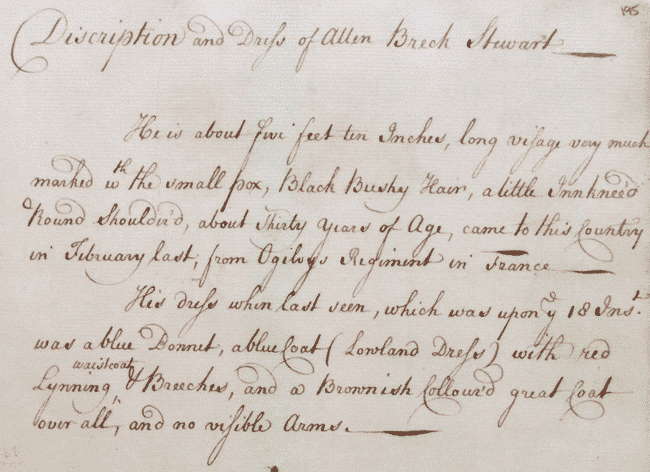 195
Discription and Dress of Allen Breck Stewart
He is about five feet ten Inches, long visage very much
marked wth the small pox, Black Bushy Hair, a little Innkneed
Round Shoulder'd, about Thirty years of Age, came to this Country
in February last, from Ogilvys Regiment in France
His dress when last seen, which was upon ye 18 Inst.
was a blue Bonnet, a blue Coat (Lowland Dress) with red
waistcoat
Lynning & Breeches, and a Brownish Collour'd great Coat
over all, and no visible Arms.